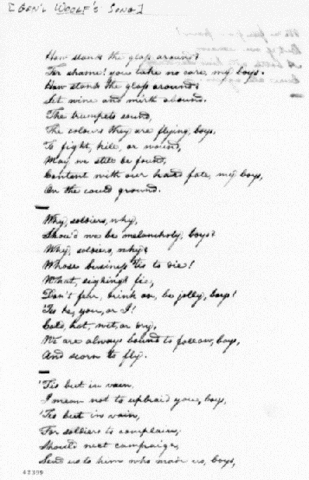 [GEN'L WOOLF'S SONG]
How stands the glass around?
For shame! you take no care, my boys.
How stands the glass around?
Let wine and mirth abound.
The trumpets sound,
The colours they are flying, boys,
To fight, kill, or wound,
May we still be found,
Content with our hard fate, my boys,
On the could ground.
Why, soldiers, why,
Shou'd we be melancholy, boys?
Why, soldiers, why?
Whose business 'tis to die!
What, sighing? fie,
Don't fear, drink on, be jolly, boys!
'Tis he, you, or I!
Cold, hot, wet, or dry,
We are always bound to follow, boys,
And scorn to fly.
'Tis but in vain,
I mean not to upbraid you, boys,
'Tis but in vain,
For soldiers to complain;
Should next campaign,
Send us to him who made us, boys,